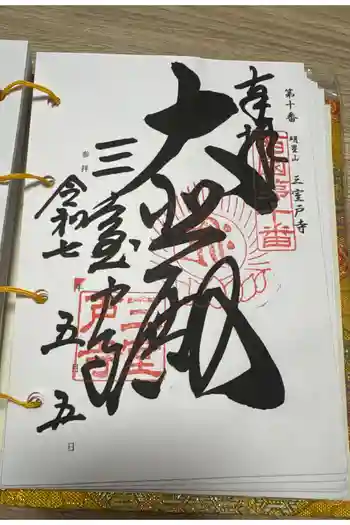 第十番 明星山 三室戸寺
奉拝
西国第十番
大悲殿
三室戸寺
三室戸寺
参拝
令和七年五月五日